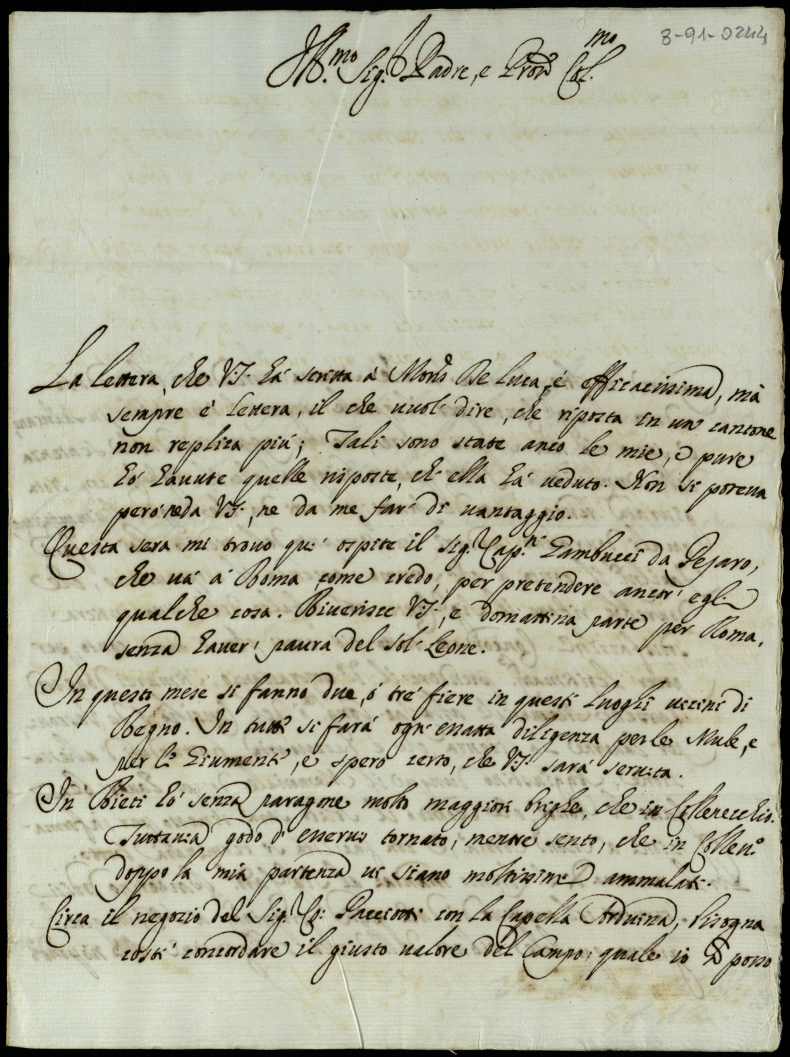 8-91-0244
Ill.mo Sig.r Padre, e Pron Col.mo
La lettera, che VS. hà scritta à Mons. De Luca, è efficacissima, mà
sempre è lettera, il che vuol' dire, che riposta in un' cantone
non replica più; Tali sono state anco le mie, e pure
hò havute quelle risposte, ch' ella hà veduto. Non si poteva
però nè da VS., ne da me far' di vantaggio.
Questa sera mi trovo quì ospite il Sig.r Cap.n Gambucci da Pesaro,
che và à Roma come credo, per pretendere ancor' egli
qualche cosa. Riverisce VS., e domattina parte per Roma,
senza haver' paura del sol Leone.
In questo mese si fanno due, ò trè fiere in questi luoghi vicini di
Regno. In tutte si farà ogni esatta diligenza per le Mule, e
per li Giumenti, e spero certo, che VS. sarà servita.
In Rieti hò senza paragone molto maggiori brighe, che in Collevecchio.
Tuttavia godo d' esservi tornato, mentre sento, che in Collev.o
doppo la mia partenza vi siano moltissimi ammalati.
Circa il negozio del Sig.r Co: Pacciotti con la Capella Arduina, bisogna
costì concordare il giusto valore del Campo; quale io posso